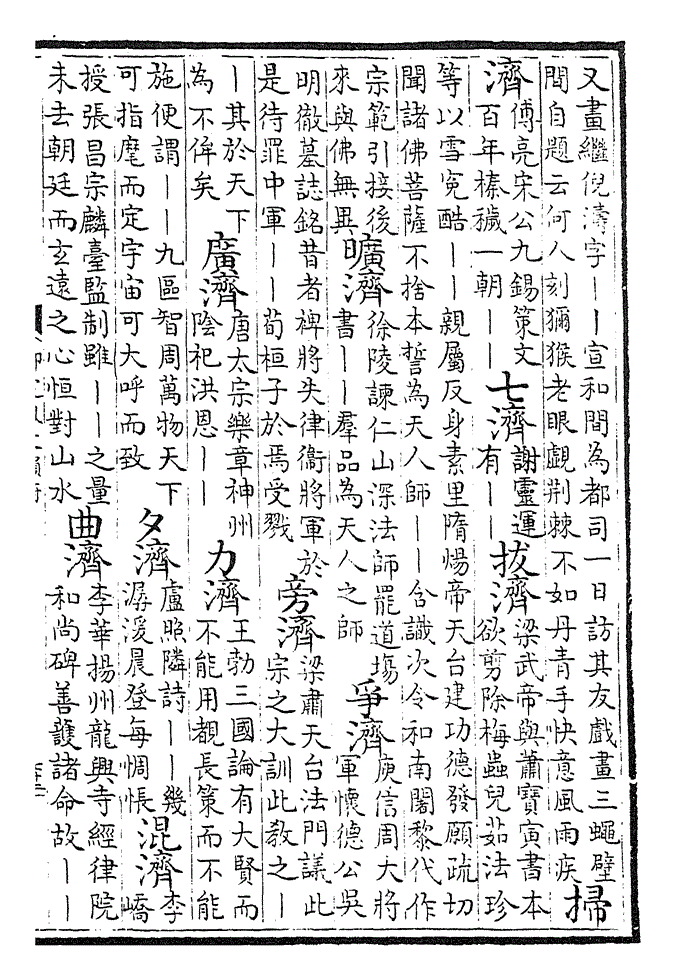 又畫繼倪濤字——宣和間為都司一日訪其友戲畫三蠅壁
間自題云何人刻獼猴老眼覷荊棘不如丹青手快意風雨疾
掃
濟
傅亮宋公九錫策文
百年榛穢一朝——
七濟
謝靈運
有——
拔濟
梁武帝與蕭寶寅書本
欲剪除梅蟲兒茹法珍
等以雪冤酷——親屬反身素里隋煬帝天台建功德發願疏切
聞諸佛菩薩不捨本誓為天人師——含識次令和南闍黎代作
宗範引接後
來與佛無異
曠濟
徐陵諫仁山深法師罷道塲
書——羣品為天人之師
爭濟
庾信周大將
軍懷德公吳
明徹墓誌銘昔者裨將失律衞將軍於
是待罪中軍——荀桓子於焉受戮
旁濟
梁肅天台法門議此
宗之大訓此敎之—
—其於天下
為不侔矣
廣濟
唐太宗樂章神州
陰祀洪恩——
力濟
王勃三國論有大賢而
不能用覩長策而不能
施便謂——九區智周萬物天下
可指麾而定宇宙可大呼而致
夕濟
盧照隣詩——幾
潺湲晨登每惆悵
混濟
李
嶠
授張昌宗麟臺監制雖——之量
未去朝廷而玄遠之心恒對山水
曲濟
李華揚州龍興寺經律院
和尚碑善護諸命故——